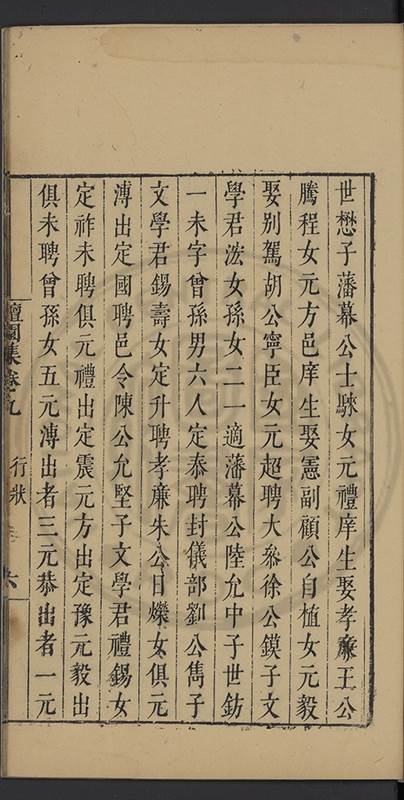 世懋子藩幕公士騋女元禮庠生娶孝廉王公
騰程女元方邑庠生娶憲副顧公自植女元毅
娶别駕胡公寧臣女元超聘大參徐公鏌子文
學君浤女孫女二一適藩幕公陸允中子世鈁
一未字曾孫男六人定泰聘封儀部劉公雋子
文學君錫壽女定升聘孝廉朱公日爍女俱元
溥出定國聘邑令陳公允堅子文學君禮錫女
定祚未聘俱元禮出定震元方出定豫元毅出
俱未聘曾孫女五元溥出者三元恭出者一元
集卷九
行狀
六